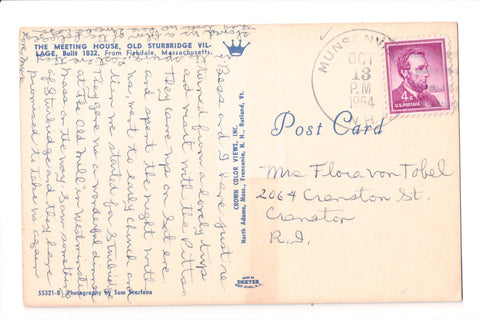 THE MEETING HOUSE, OLD STURBRIDGE VIL-
LAGE, Built 1832, From Fiskdale, Massachusetts.
Bess and I have just re-
turned from a lovely trip
and visit with the Pittons
They came up on Sat eve.
and spent the night with
us, went to early church and
then we started for Sturbridge
They gave us a wonderful dinner
at the Old Mill in Westminster
Mass on the way. Saw something
of Sturbridge and they have
promised to take us again
55321-B Photography by Sam Smarfone
CROWN COLOR VIEWS, INC.
North Adams, Mass., Franconia, N. H., Rutland, Vt.
MADE BY
DEXTER
WEST NYACK, N.Y.
MUNSONV
OCT
13
P.M
1964
N.H.
4¢
U.S. POSTAGE
Post Card
Mrs Flora von Tobel
2064 Cranston St.
Cranston
R.I.